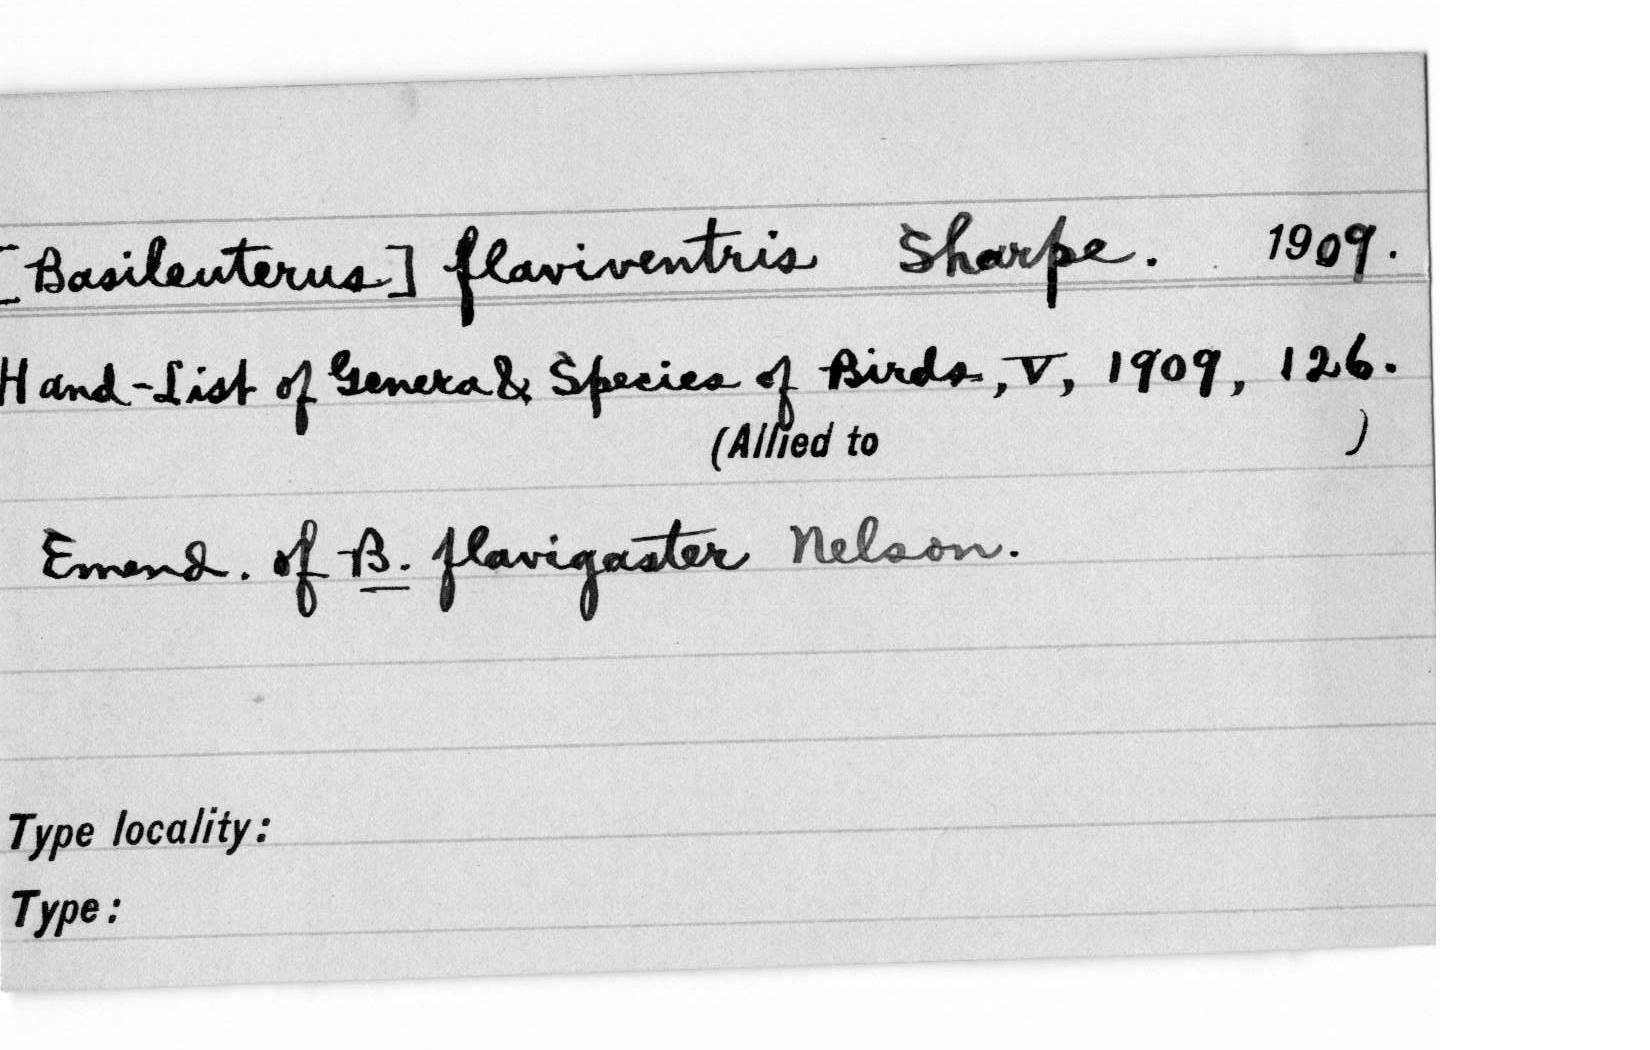 [Basileuterus] flaviventris Sharpe. 1909.
Hand-List of Genera & Species of Birds, V, 1909, 126.
(Allied to )
Emend. of B. flavigaster Nelson.
Type locality:
Type: